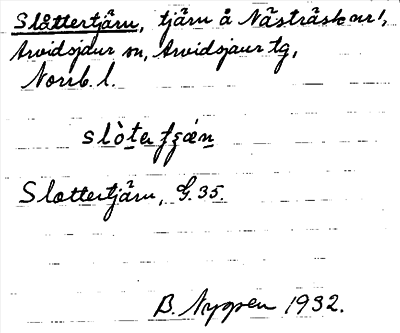 Slåttertjärn, tjärn å Nästräsk nr 1,
Arvidsjaur sn, Arvidsjaur tg,
Norrb. l.
slòter
Slottertjärn, G. 35.
B. Nygren 1932.